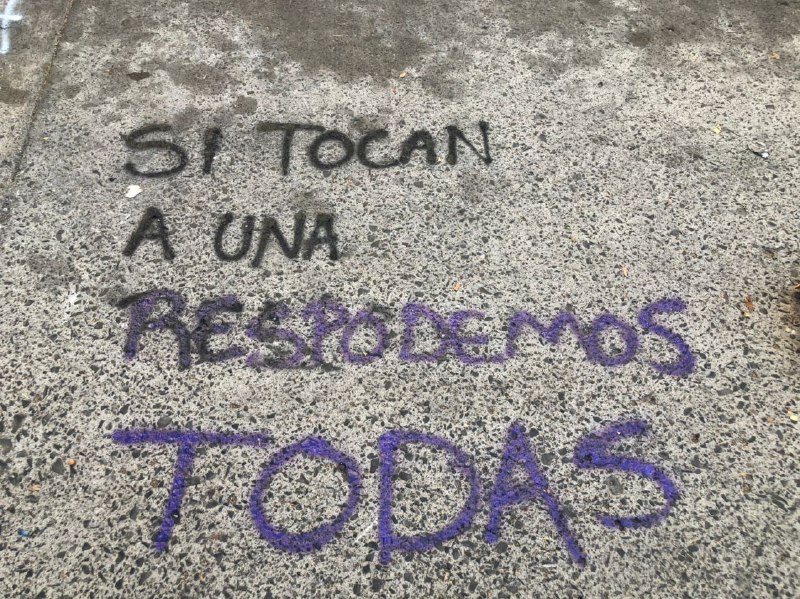 SI TOCAN
A UNA
RESPODEMOS
TODAS